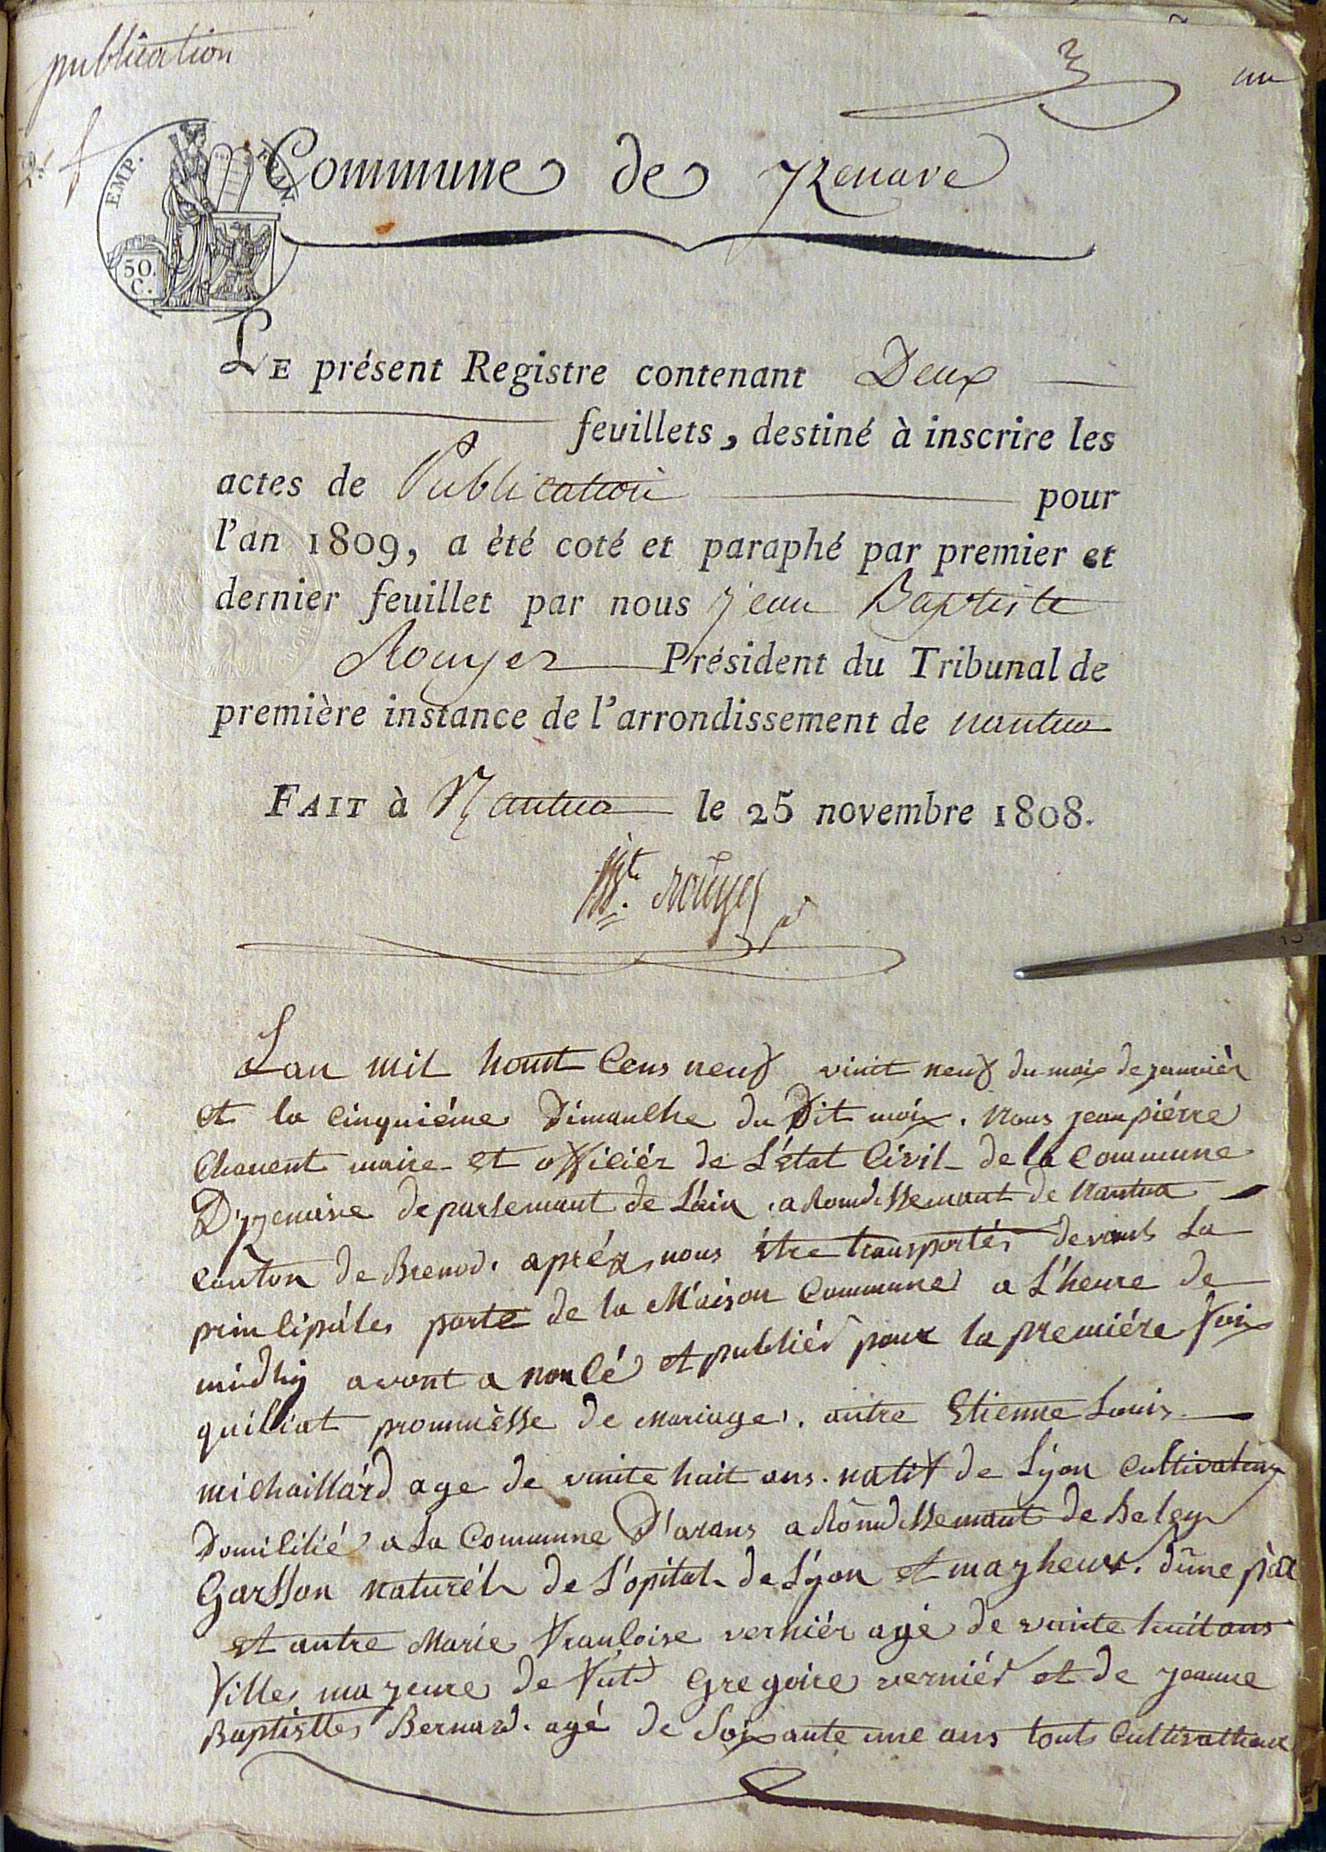 publication
3
un
EMP. FRAN.
50. C.
Commune de Yzenave
LE présent Registre contenant Deux
feuillets, destiné à inscrire les
actes de Publication pour
l'an 1809, a été coté et paraphé par premier et
dernier feuillet par nous jean Baptiste
Rouyer Président du Tribunal de
première instance de l'arrondissement de nantua
FAIT à Nantua le 25 novembre 1808.
Bte. Rouyer
Lan mil houit Cens neuf vinit neuf du moix de janvièr
et la Cinquiéme Dimanche du Dit moix. Nous jean piérre
Chanent maire et officiér de L'état Civil de la Commune
D'yzenave departemant de L'ain. arondissemant de Nantua
Canton de Brenod. apréx nous étre transportér devant La
principáles porte de la Maison Commune a L'heure de
midhy avont a noncé et publiér pour la premiére foix
quil iat prommèsse de Mariage. antre Etienne Louis
michaillárd age de vinite huit ans. natif de Lÿon Cultivateur
Domicilié a La Commune D'arans arondissemant de Beley
Garsson naturél de L'opital de Lÿon et mayheur. d'une pàr
et autre Marie Françoise verniér agé de vinite huit ans
filles mayeure de fut Gregoire verniér et de jeanne
Baptistte Bernard. agé de Soixante une ans touts Cultivatheur